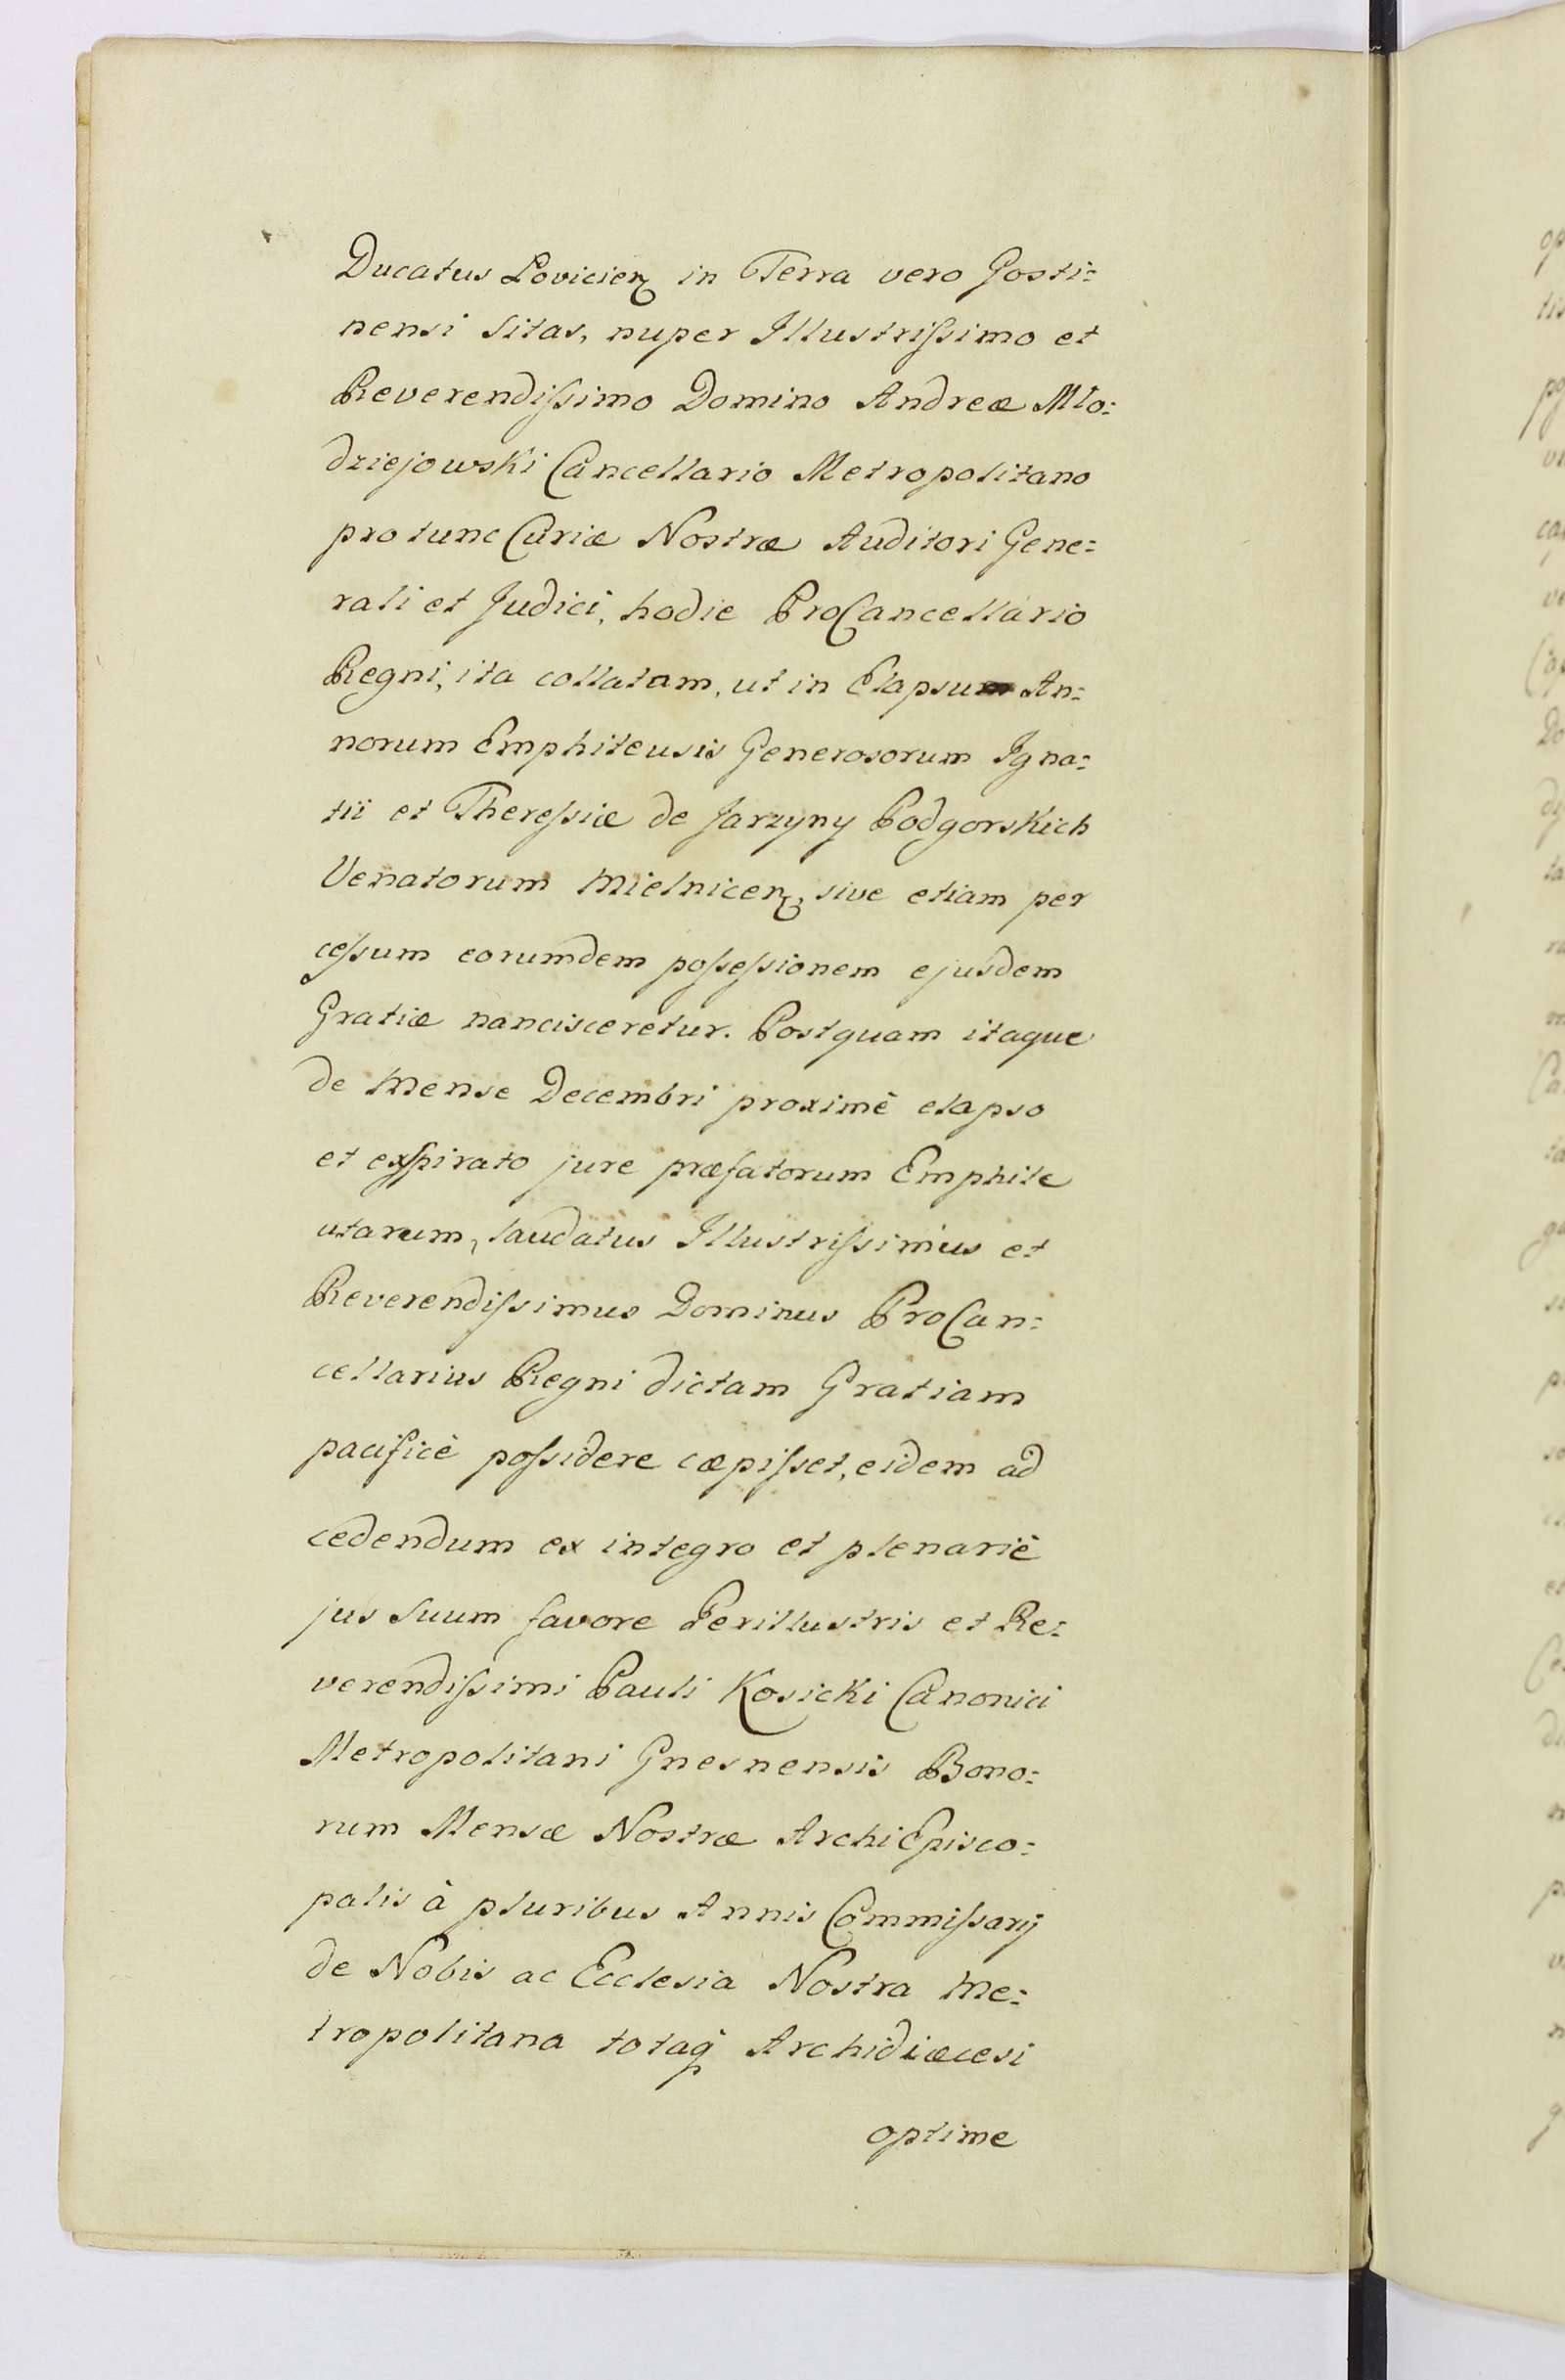 Ducatus Lovicien in Terra vero Gosti=
nensi sitas, nuper Illustrissimo et
Reverendissimo Domino Andreæ Mlo=
dziejowski Cancellario Metropolitano
pro tunc Curiæ Nostræ Auditori Gene=
rali et Judici, hodie ProCancellario
Regni, ita collatam, ut in Elapsum An=
norum Emphiteusis Generosorum Igna=
tii et Theressiæ de Jarzyny Podgorskich
Venatorum Mielnicen, sive etiam per
cessum eorumdem possessionem ejusdem
Gratiæ nancisceretur. Postquam itaque
de Mense Decembri proximè elapso
et exspirato jure præfatorum Emphite
utarum, laudatus Illustrissimus et
Reverendissimus Dominus ProCan=
cellarius Regni dictam Gratiam
pacificè possidere cæpisset, eidem ad
cedendum ex integro et plenariè
jus suum favore Perillustris et Re=
verendissimi Pauli Kosicki Canonici
Metropolitani Gnesnensis Bono=
rum Mensæ Nostræ ArchiEpisco=
palis à pluribus Annis Commissarij
de Nobis ac Ecclesia Nostra Me=
tropolitana totaq Archidiæcesi
optime